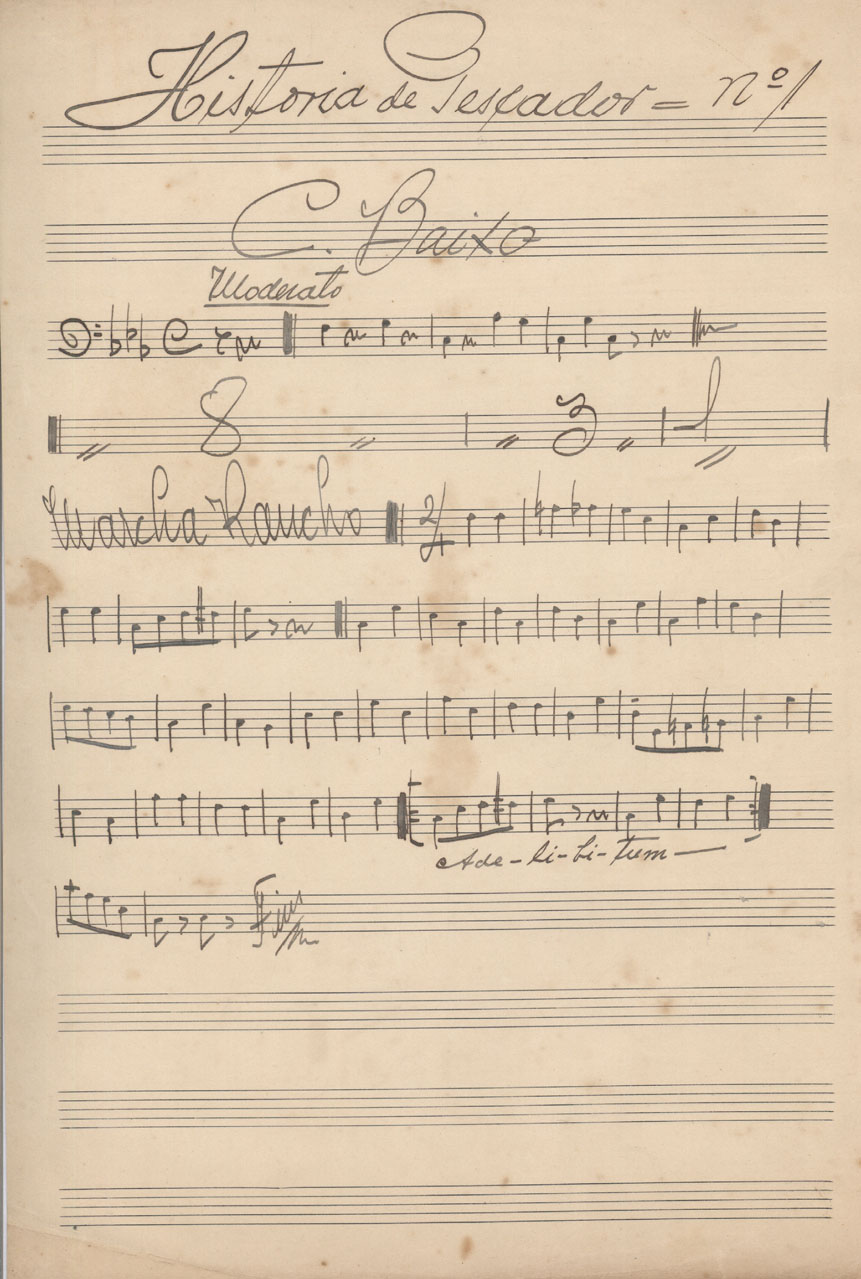 Historia de Pescador = nº 1
C. Baixo
Moderato
C
8 3
Marcha Rancho 2/4
Ade-li-bi-tum
Fim